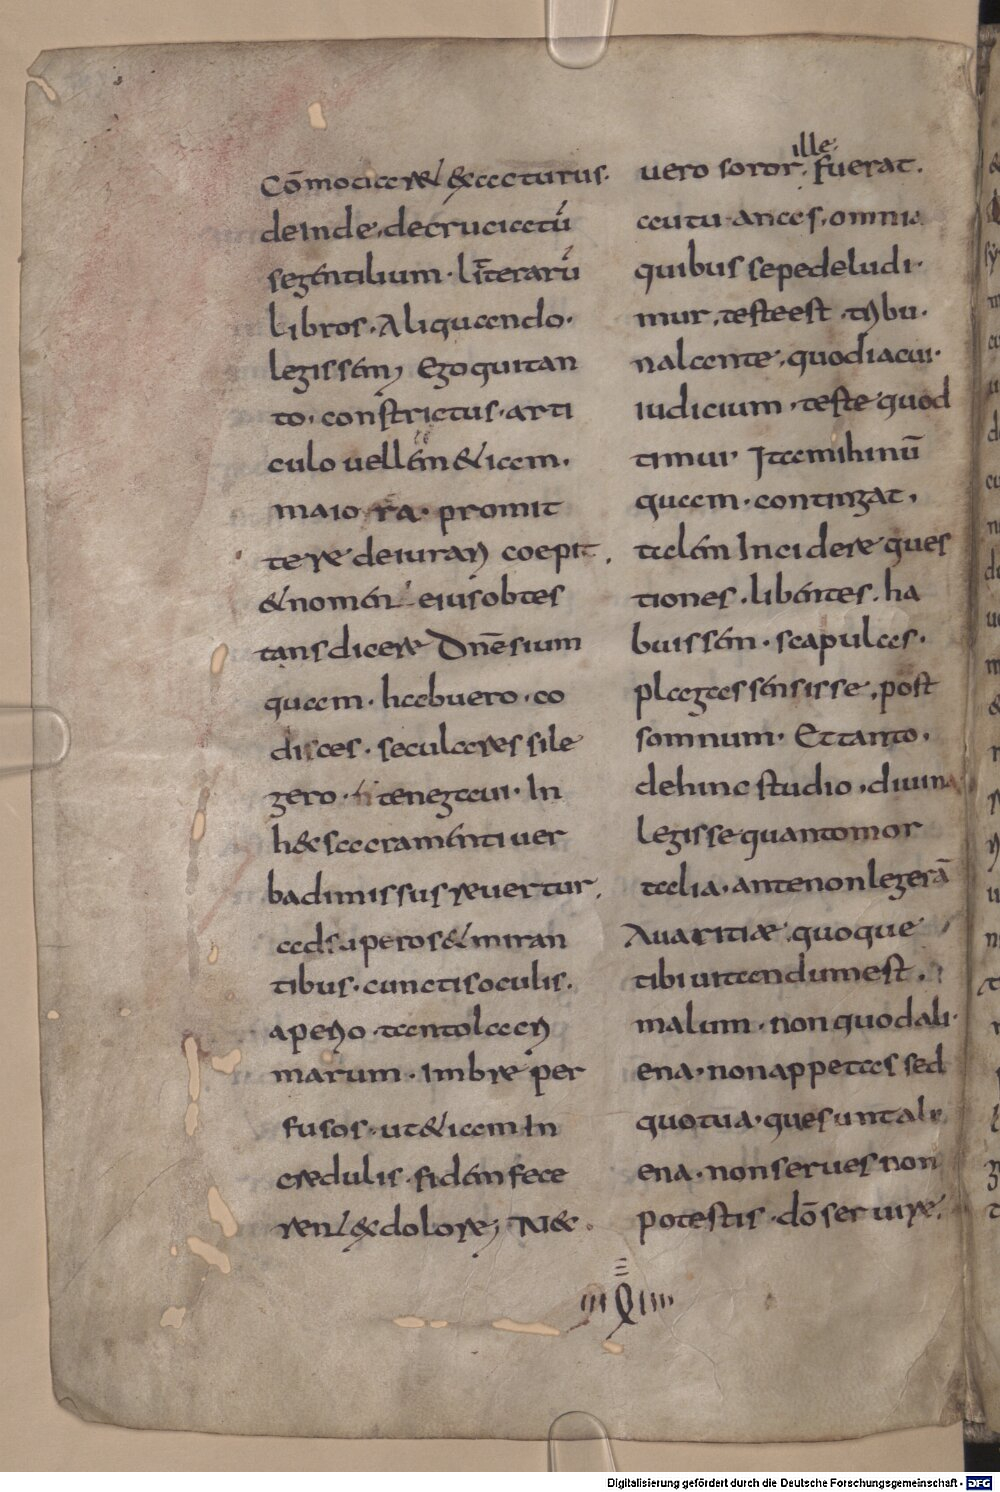 Cōmodaret· & exacturus·
deinde· decruciatū
se gentilium· litterarū
libros· Aliquando·
legissem, Ego qui tan
to· constrictus· arti
culo uellem &iam·
maiora· promit
tere deiurari coepit
& nomen eius obtes
tans dicere Dnē si um
quam· habuero· co
dices· seculares si le
gero· te negaui· In
h&c sacramenti uer
ba dimissus reuertur·
ad superos & miran
tibus· cunctis oculis·
aperio· tanto lacri
marum· imbre per
fusos· ut &iam In
credulis· fidem fece
rent & dolore, Nec
uero soror· ille fuerat·
aut uanas· omnia
quibus sepe deludi·
mur· teste est· tribu·
nal ante· quod iacui·
iudicium· teste quod
timui· Ita mihi nū
quam· contingat·
talem Incidere ques
tiones· libentes· ha
buissem· scapulas·
plagas sensisse· post
somnum· Et tanto·
dehinc studio· diuina
legisse quanto mor
talia· ante non legerā
Auaritiæ quoque
tibi uitandum est·
malum· non quod ali·
ena· non appetas sed
quo tua· que sunt ali
ena· non serues non
potestis· dō seruire·